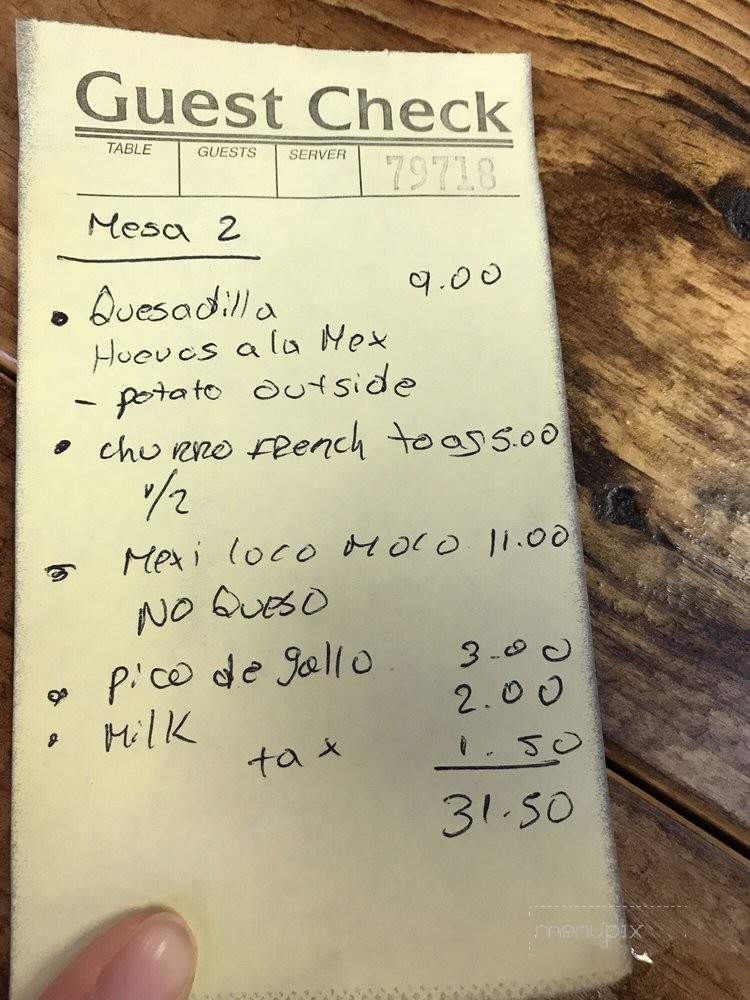 Guest Check
TABLE GUESTS SERVER 79718
Mesa 2
9.00
• Quesadilla
Huevos a la Mex
- potato outside
• churro French toas 5.00
1/2
Mexi loco moco 11.00
NO QUESO
• pico de gallo 3.00
• Milk 2.00
tax 1.50
31.50
menupix